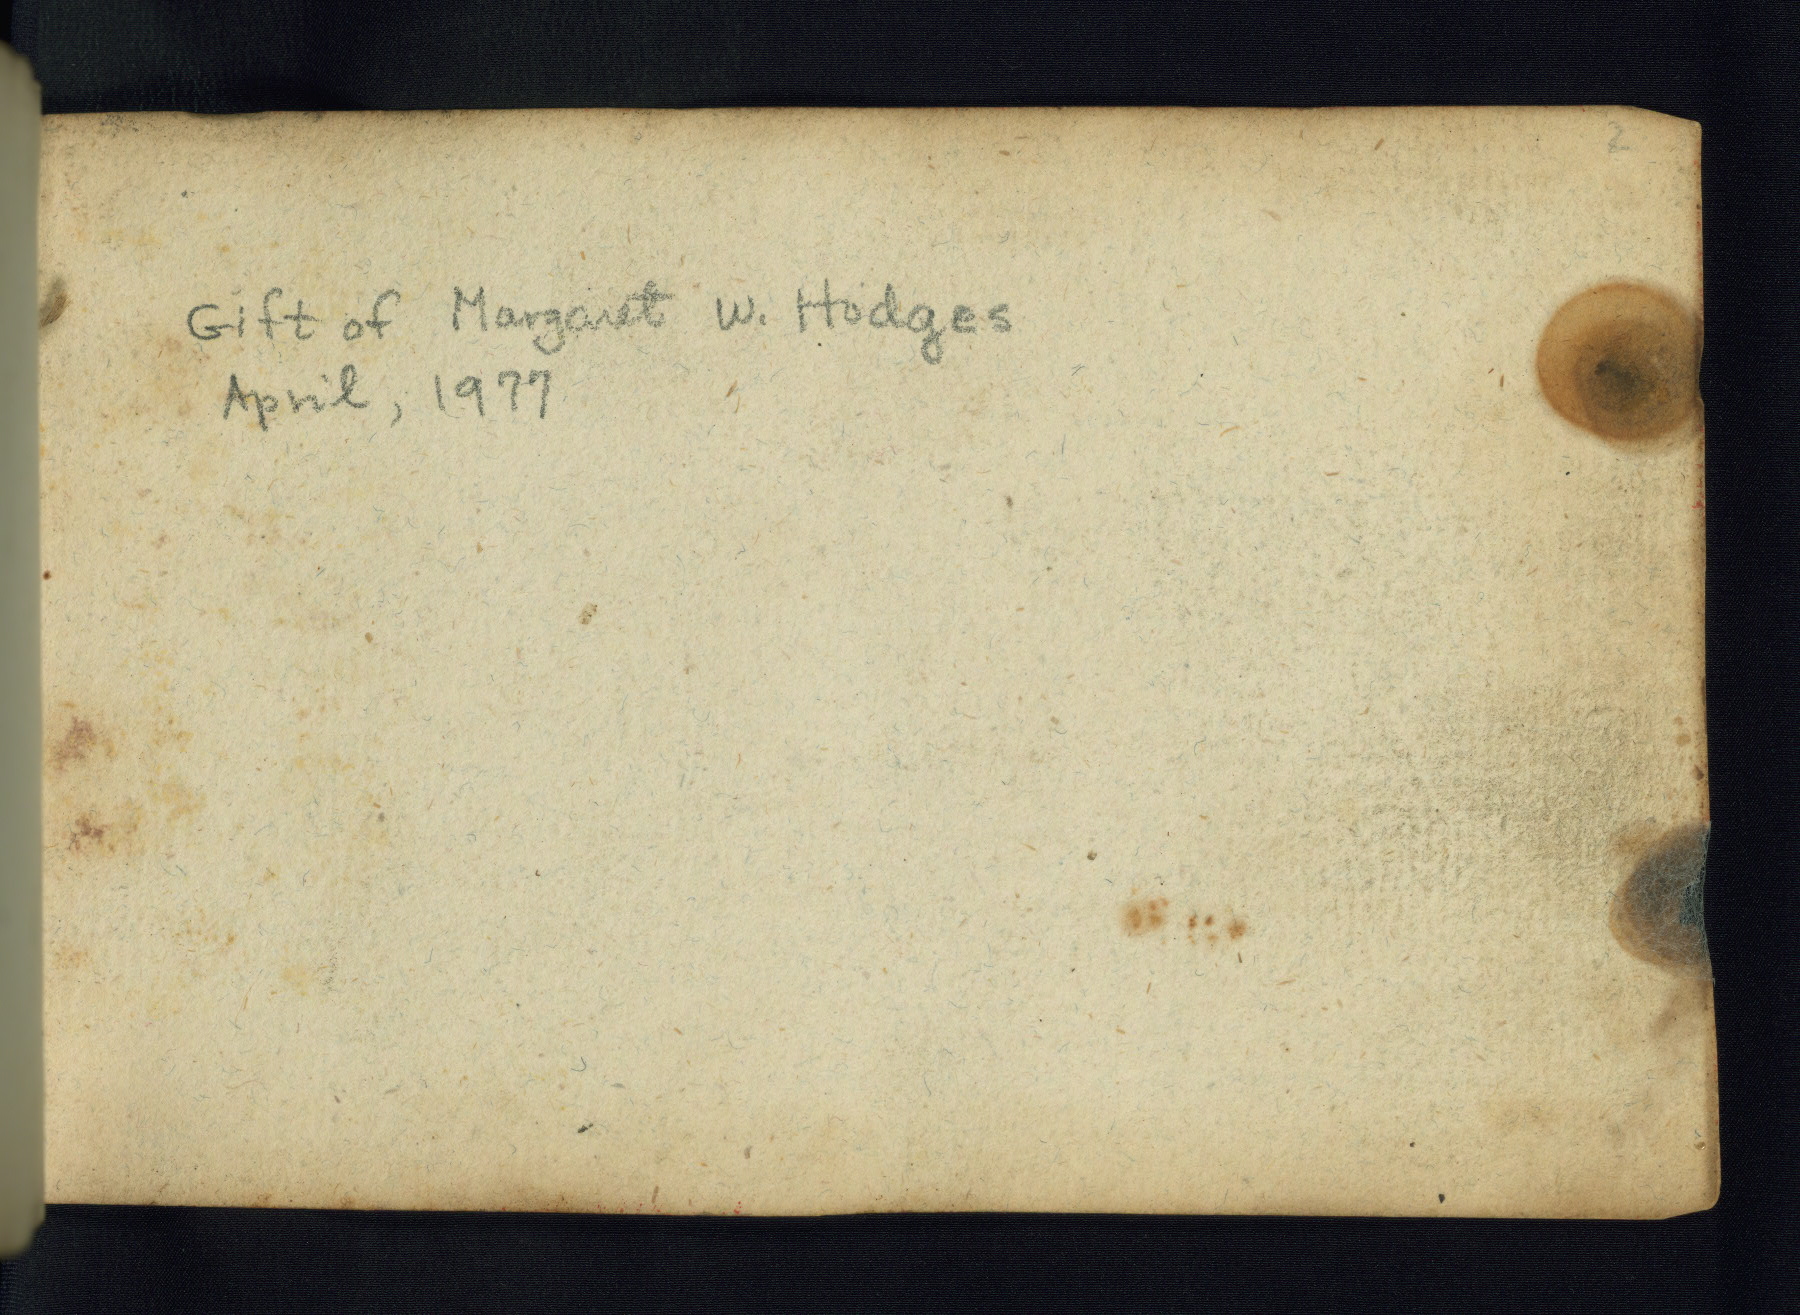 2
Gift of Margaret W. Hodges
April, 1977